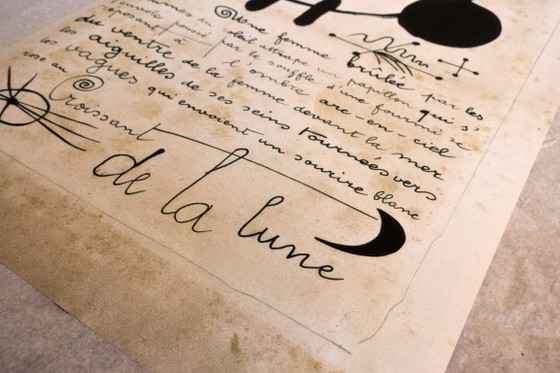 Une femme brûlée par les
mmes du soleil attrape un papillon qui s'
envole poussé par le souffle d'une fourmi
reposant à l'ombre arc-en-ciel
du ventre de la femme devant la mer
les aiguilles de ses seins tournées vers
les vagues qui envoient un sourire blanc
rose au Croissant
de la lune